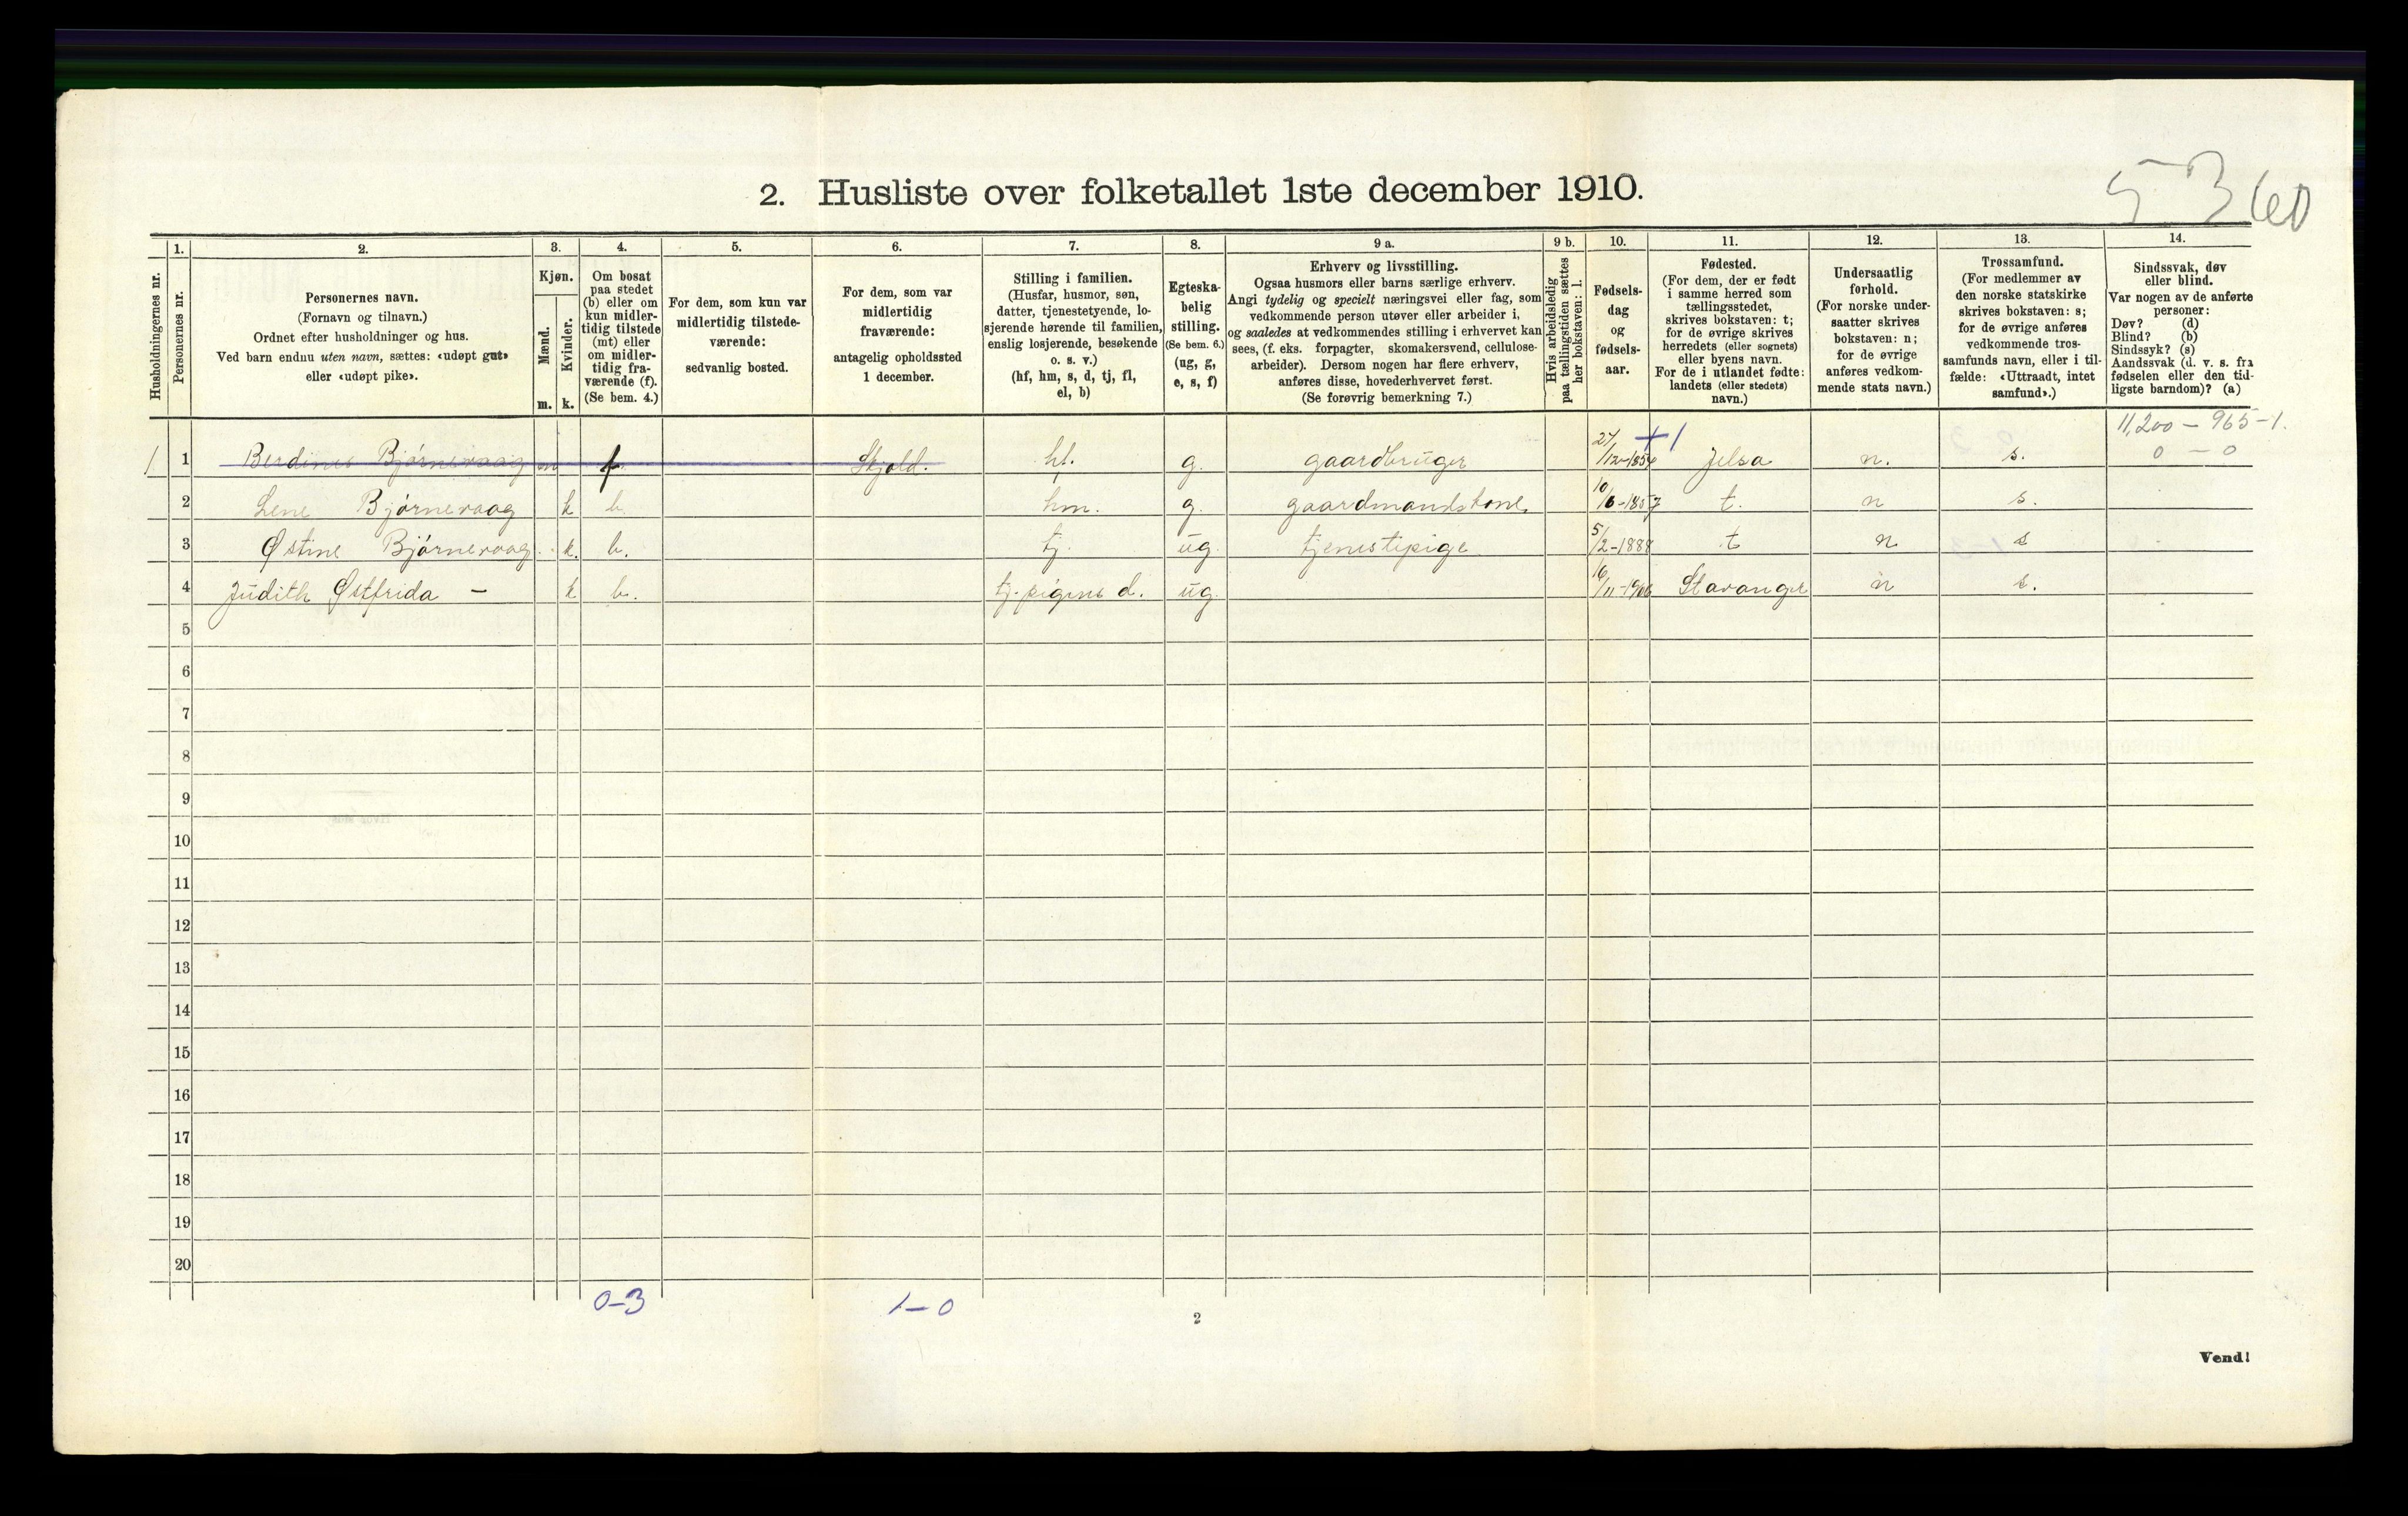 5360
2. Husliste over folketallet 1ste december 1910.
Husholdningernes nr.
1.
Personernes nr.
2.
Personernes navn.
(Fornavn og tilnavn.)
Ordnet efter husholdninger og hus.
Ved barn endnu uten navn, sættes: «udøpt gut»
eller «udøpt pike».
3.
Kjøn.
Mænd.
Kvinder.
m. k.
4.
Om bosat
paa stedet
(b) eller om
kun midler-
tidig tilstede
(mt) eller
om midler-
tidig fra-
værende (f).
(Se bem. 4.)
5.
For dem, som kun var
midlertidig tilstede-
værende:
sedvanlig bosted.
6.
For dem, som var
midlertidig
fraværende:
antagelig opholdssted
1 december.
7.
Stilling i familien.
(Husfar, husmor, søn,
datter, tjenestetyende, lo-
sjerende hørende til familien,
enslig losjerende, besøkende
o. s. v.)
(hf, hm, s, d, tj, fl,
el, b)
8.
Egteska-
belig
stilling.
(Se bem. 6.)
(ug, g,
e, s, f)
9 a.
Erhverv og livsstilling.
Ogsaa husmors eller barns særlige erhverv.
Angi tydelig og specielt næringsvei eller fag, som
vedkommende person utøver eller arbeider i,
og saaledes at vedkommendes stilling i erhvervet kan
sees, (f. eks. forpagter, skomakersvend, cellulose-
arbeider). Dersom nogen har flere erhverv,
anføres disse, hovederhvervet først.
(Se forøvrig bemerkning 7.)
9 b.
Hvis arbeidsledig
paa tællingstiden sættes
her bokstaven: l.
10.
Fødsels-
dag
og
fødsels-
aar.
11.
Fødested.
(For dem, der er født
i samme herred som
tællingsstedet,
skrives bokstaven: t;
for de øvrige skrives
herredets (eller sognets)
eller byens navn.
For de i utlandet fødte:
landets (eller stedets)
navn.)
12.
Undersaatlig
forhold.
(For norske under-
saatter skrives
bokstaven: n;
for de øvrige
anføres vedkom-
mende stats navn.)
13.
Trossamfund.
(For medlemmer av
den norske statskirke
skrives bokstaven: s;
for de øvrige anføres
vedkommende tros-
samfunds navn, eller i til-
fælde: «Uttraadt, intet
samfund».)
14.
Sindssvak, døv
eller blind.
Var nogen av de anførte
personer:
Døv? (d)
Blind? (b)
Sindssyk? (s)
Aandssvak (d. v. s. fra
fødselen eller den tid-
ligste barndom)? (a)
11,200 – 965 – 1.
0 – 0
1 1 Berdines Bjørnevaag m f Skjold. hf. g. gaardbruger 27/12-1854 +1 Jelsa n. s.
2 Lene Bjørnevaag k b. hm. g. gaardmandskone. 10/6-1857 t. n s.
3 Østine Bjørnevaag. k. b. tj. ug. tjenestepige 5/2-1888 t n s
4 Judith Østfrida – k b. tj. pigens d. ug. 16/11-1906 Stavanger n s.
5
6
7
8
9
10
11
12
13
14
15
16
17
18
19
20
0–3 1–0
2
Vend!